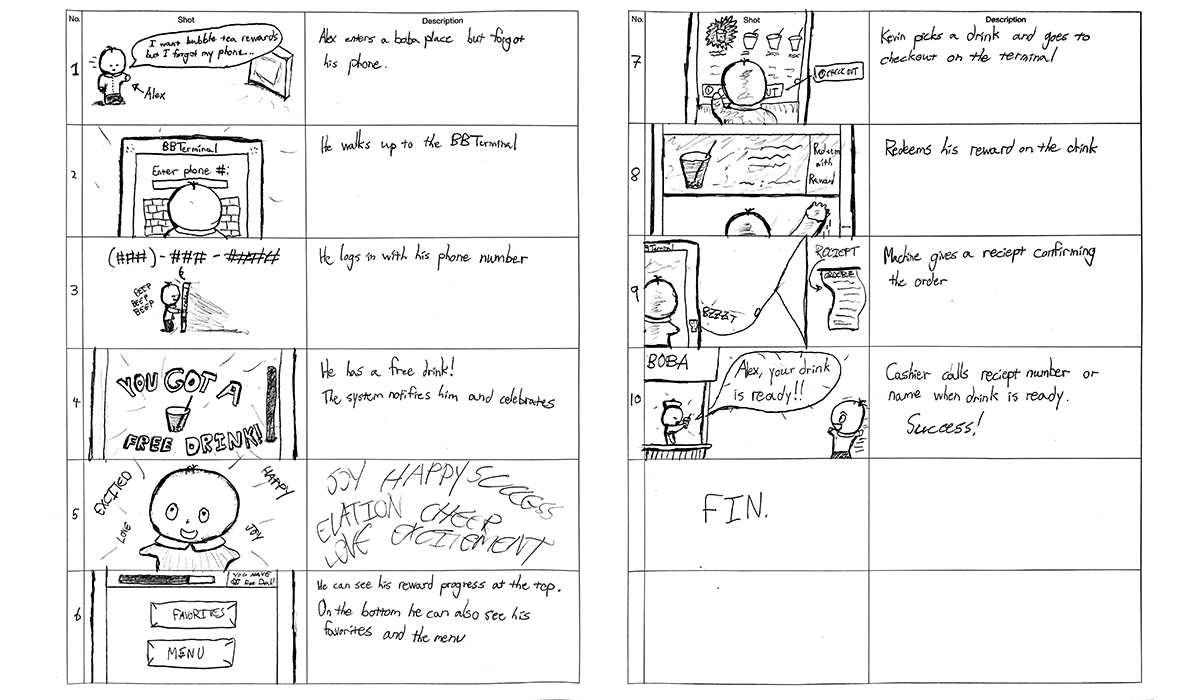 No. Shot Description
1
I want bubble tea rewards
but I forgot my phone...
Alex
Alex enters a boba place but forgot
his phone.
2
BBTerminal
Enter phone #:
He walks up to the BBTerminal
3
(###)-###-####
BEEP
BEEP
BEEP
He logs in with his phone number
4
YOU GOT A
FREE DRINK!
He has a free drink!
The system notifies him and celebrates
5
EXCITED
HAPPY
LOVE
JOY
JOY HAPPY SUCCESS
ELATION CHEER
LOVE EXCITEMENT
6
YOU HAVE
Free Drink!
FAVORITES
MENU
He can see his reward progress at the top.
On the bottom he can also see his
favorites and the menu
No. Shot Description
7
CHECKOUT
Kevin picks a drink and goes to
checkout on the terminal
8
Redeem
with
Reward
Redeems his reward on the drink
9
BTerminal
BZZZT
RECIEPT
Machine gives a reciept confirming
the order
10
BOBA
Alex, your drink
is ready!!
Cashier calls reciept number or
name when drink is ready.
Success!
FIN.